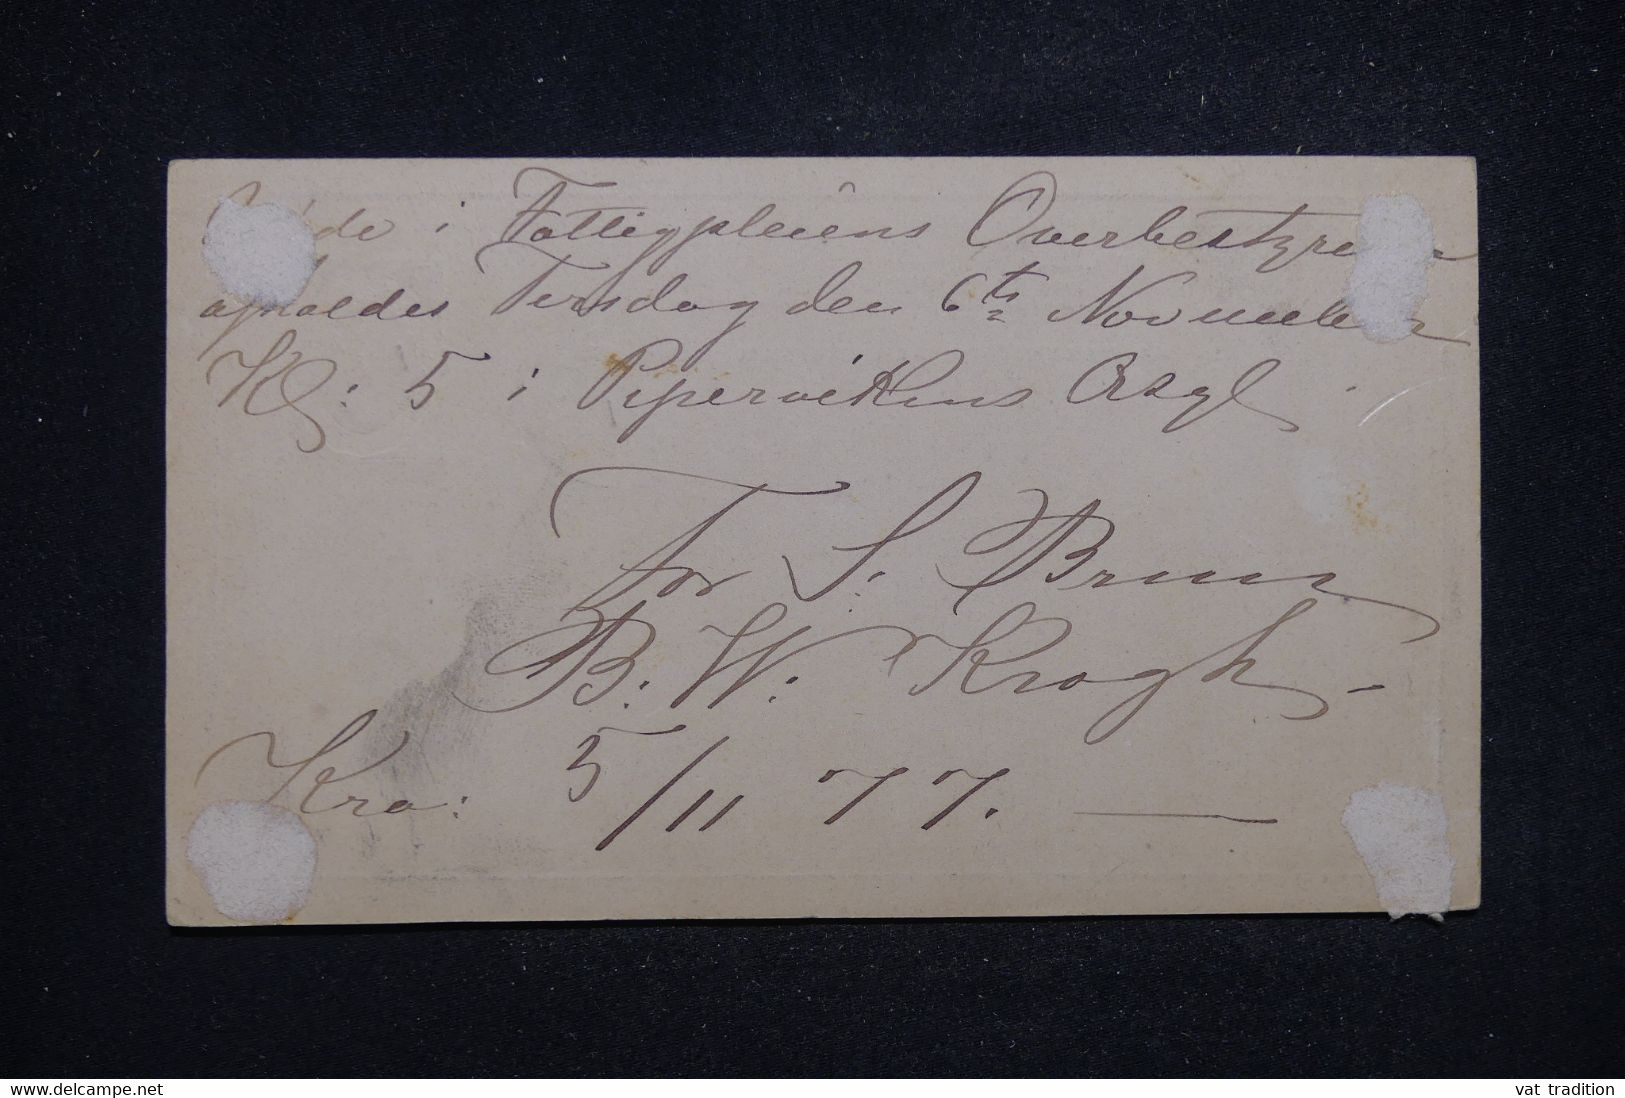 i Fattigpleiens Overbestyre
afholdes Tirsdag den 6te November
Kl: 5 i Pipervikens Asyl
For S. Bruun
B. W. Krogh
Kra: 5/11 77. —
www.delcampe.net
vat tradition